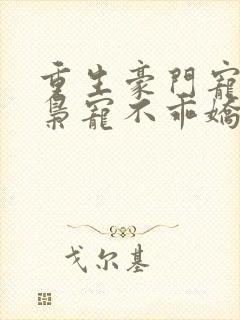 重生豪門寵
梟寵不乖嬌
戈尔基